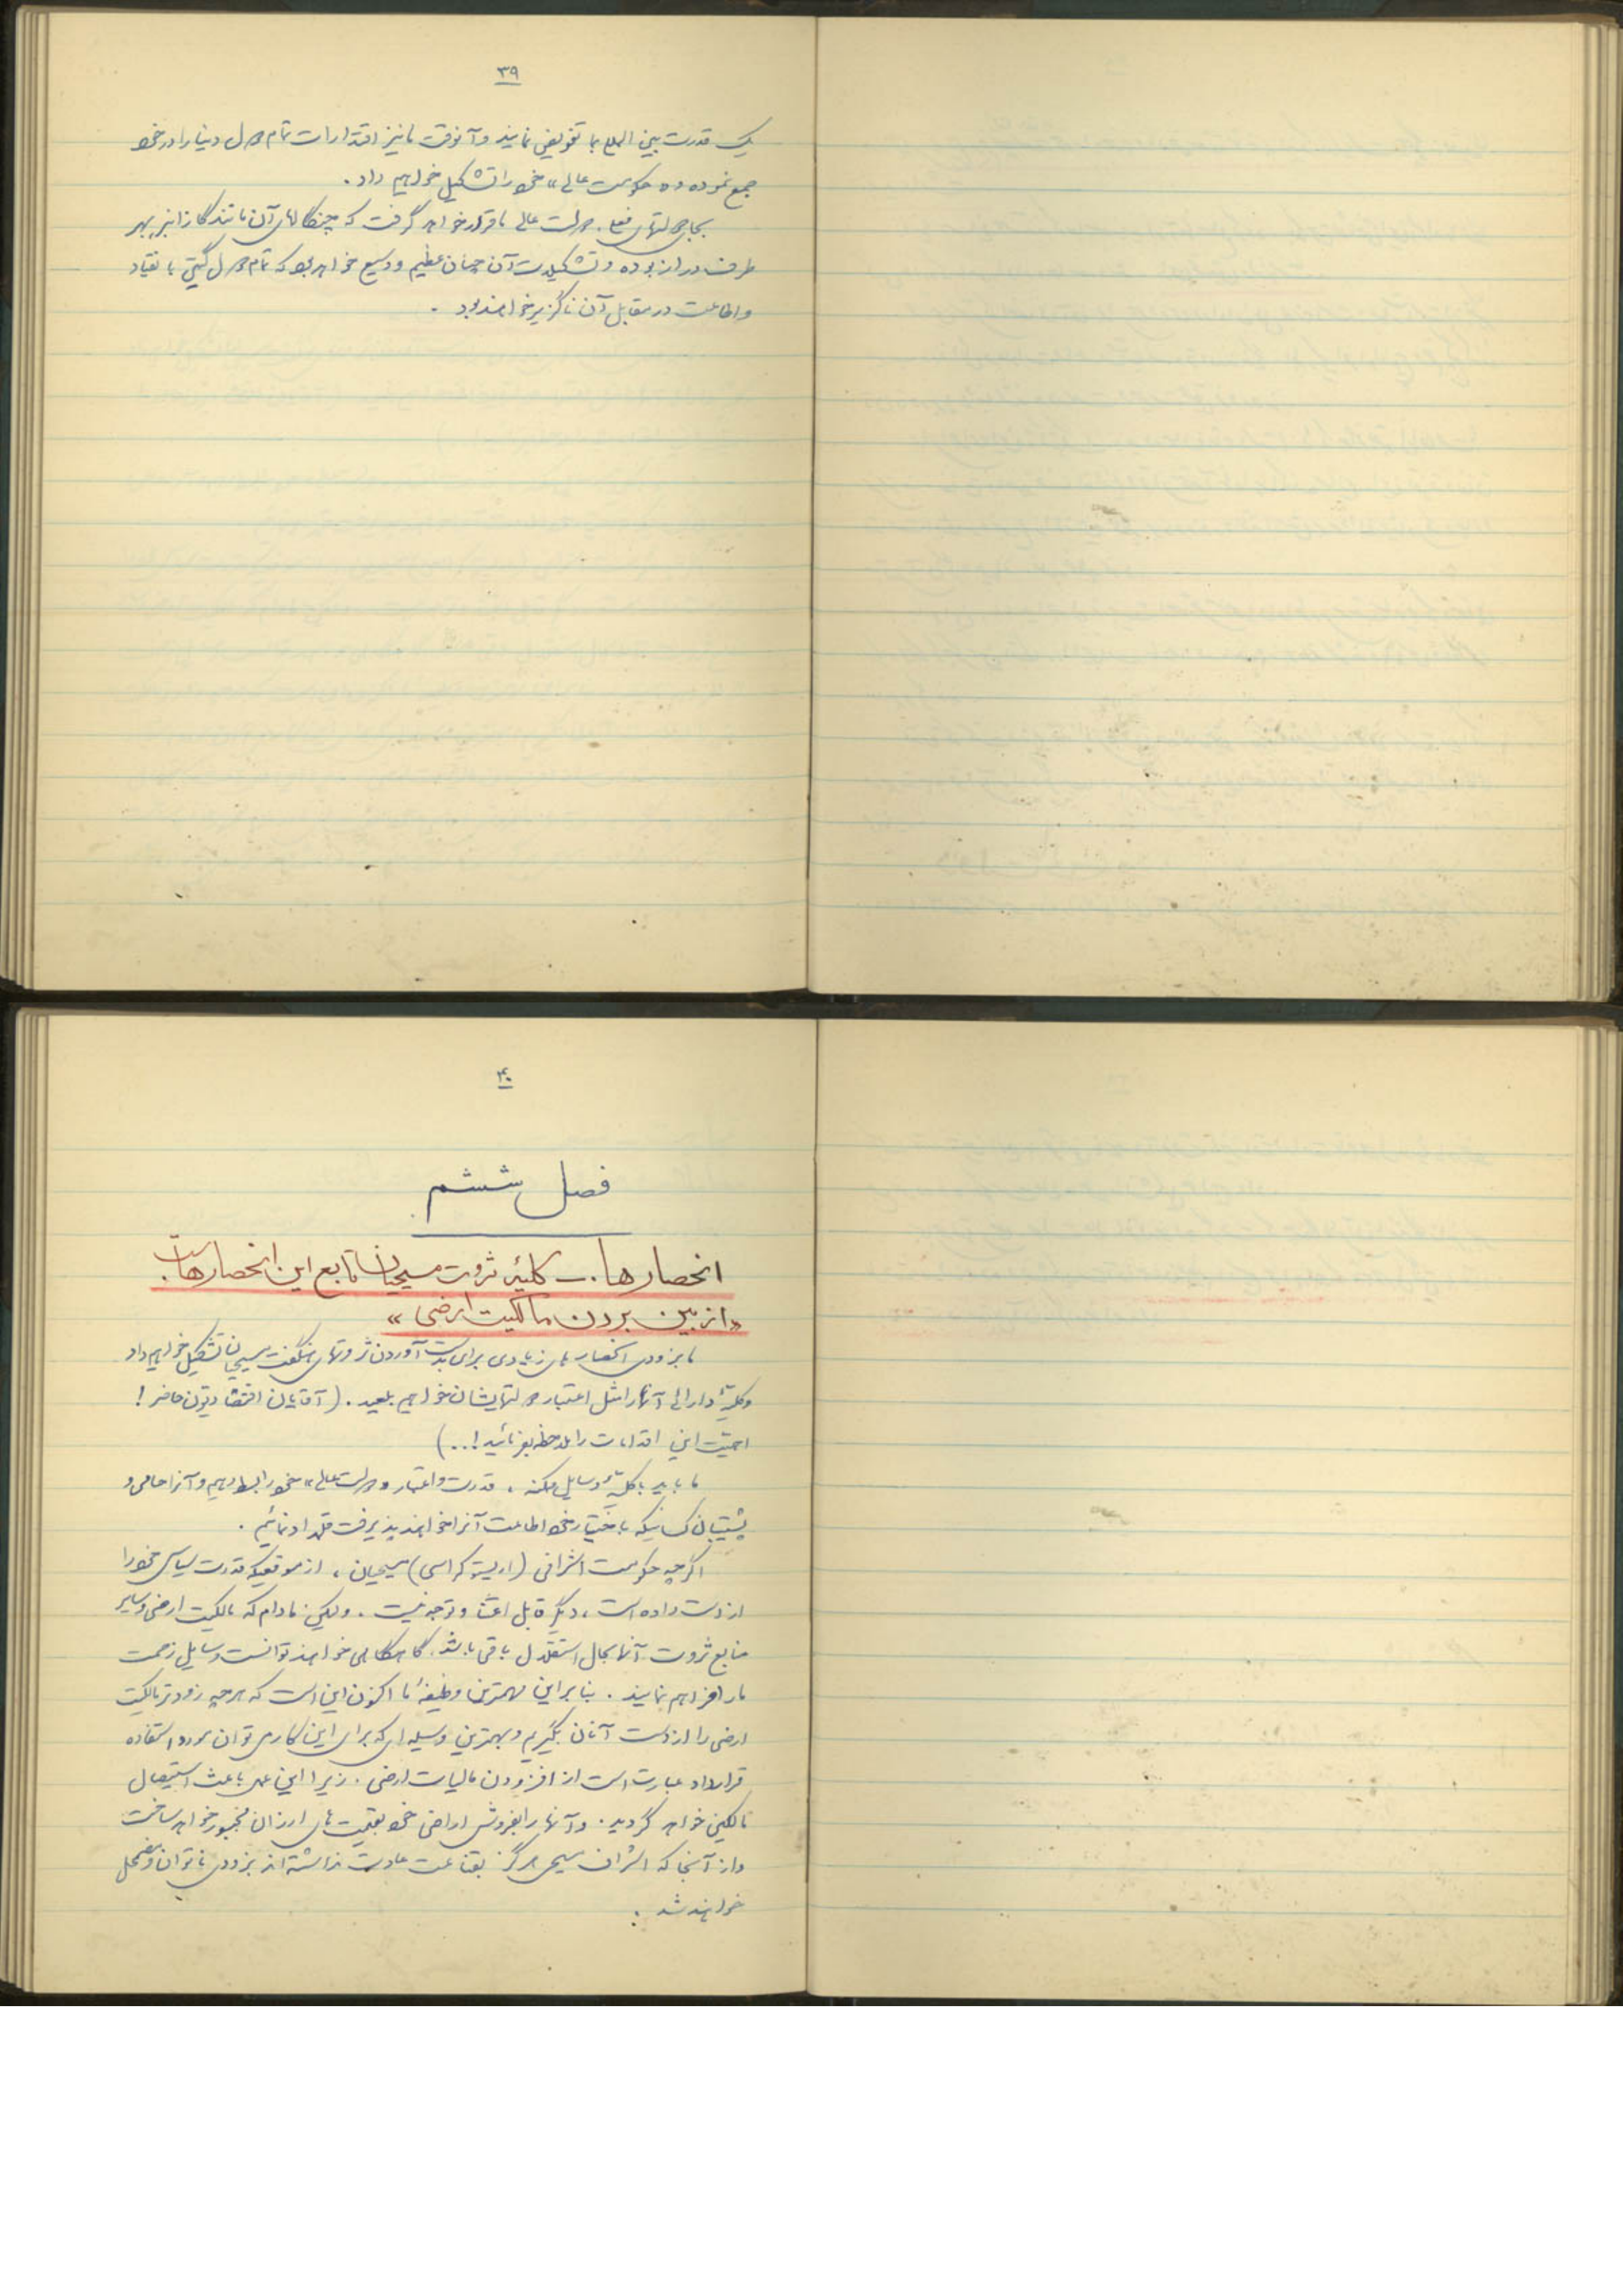 ۳۹
یک قدرت بین المللی بما تفویض نمایند و آنوقت ما نیز اقتدارات تمام دول دنیا را در خود
جمع نموده و «حکومت عالی» خود را تشکیل خواهیم داد .
بجای دولتهای فعلی ، دولت عالی ما قرار خواهد گرفت که چنگالهای آن مانند گازانبر بهر
طرف دراز بوده و تشکیلات آن چنان عظیم و وسیع خواهد بود که تمام دول گیتی با نقیاد
و اطاعت در مقابل آن ناگزیر خواهند بود .
۴۰
فصل ششم
انحصارها . ــ کلیهٔ ثروت مسیحیان تابع این انحصارهاست .
«از بین بردن مالکیت ارضی»
ما بزودی انحصارهای زیادی برای بدست آوردن ثروتهای هنگفت مسیحیان تشکیل خواهیم داد
و کلیهٔ دارائی آنها را مثل اعتبار دولتهایشان خواهیم بلعید . (آقایان اقتصادیون حاضر !
اهمیت این اقدامات را ملاحظه بفرمائید ! ..)
ما باید با کلیهٔ وسایل ممکنه ، قدرت و اعتبار «دولت عالی» خود را بسط دهیم و آنرا حامی و
پشتیبان کسانیکه باختیار خود اطاعت آنرا خواهند پذیرفت قلمداد نمائیم .
اگر چه حکومت اشرافی (اریستوکراسی) مسیحیان ، از موقعیکه قدرت سیاسی خود را
از دست داده است ، دیگر قابل اعتنا و توجه نیست . ولیکن مادام که مالکیت ارضی و سایر
منابع ثروت آنها بحال استقلال باقی باشد . گاهگاهی خواهند توانست وسایل زحمت
ما را فراهم نمایند . بنابراین مهمترین وظیفهٔ ما اکنون این است که هر چه زودتر مالکیت
ارضی را از دست آنان بگیریم و بهترین وسیله ای که برای این کار می توان مورد استفاده
قرارداد عبارت است از افزودن مالیات ارضی . زیرا این عمل باعث استیصال
مالکین خواهد گردید . و آنها را بفروش اراضی خود بقیمت های ارزان مجبور خواهد ساخت
و از آنجا که اشراف مسیحی هرگز بقناعت عادت نداشته اند بزودی ناتوان و مضمحل
خواهند شد .